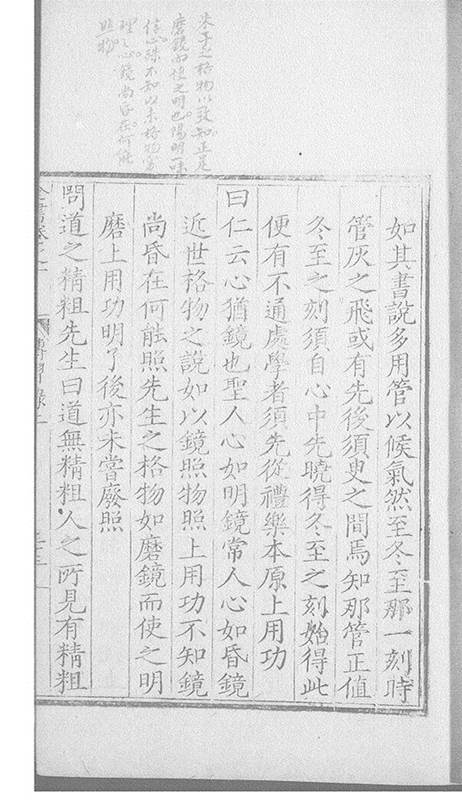 朱子之格物以致知正是
磨鏡而使之明也陽明一味
信心殊不知以未格物窮
理之心鏡尚昏在何能
照物
如其書說多用管以候氣然至冬至那一刻時
管灰之飛或有先後須臾之間焉知那管正值
冬至之刻須自心中先曉得冬至之刻始得此
便有不通處學者須先從禮樂本原上用功
曰仁云心猶鏡也聖人心如明鏡常人心如昏鏡
近世格物之說如以鏡照物照上用功不知鏡
尚昏在何能照先生之格物如磨鏡而使之明
磨上用功明了後亦未嘗廢照
問道之精粗先生曰道無精粗人之所見有精粗